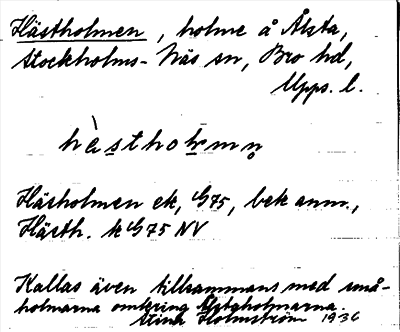 Hästholmen, holme å Ålsta,
Stockholms-Näs sn, Bro hd,
Upps. l.
hàstholmn̥
Häsholmen ek, G75, bek anm.,
Hästh. k G75 NV
Kallas även tillsammans med små-
holmarna omkring
Stina Holmström 1936